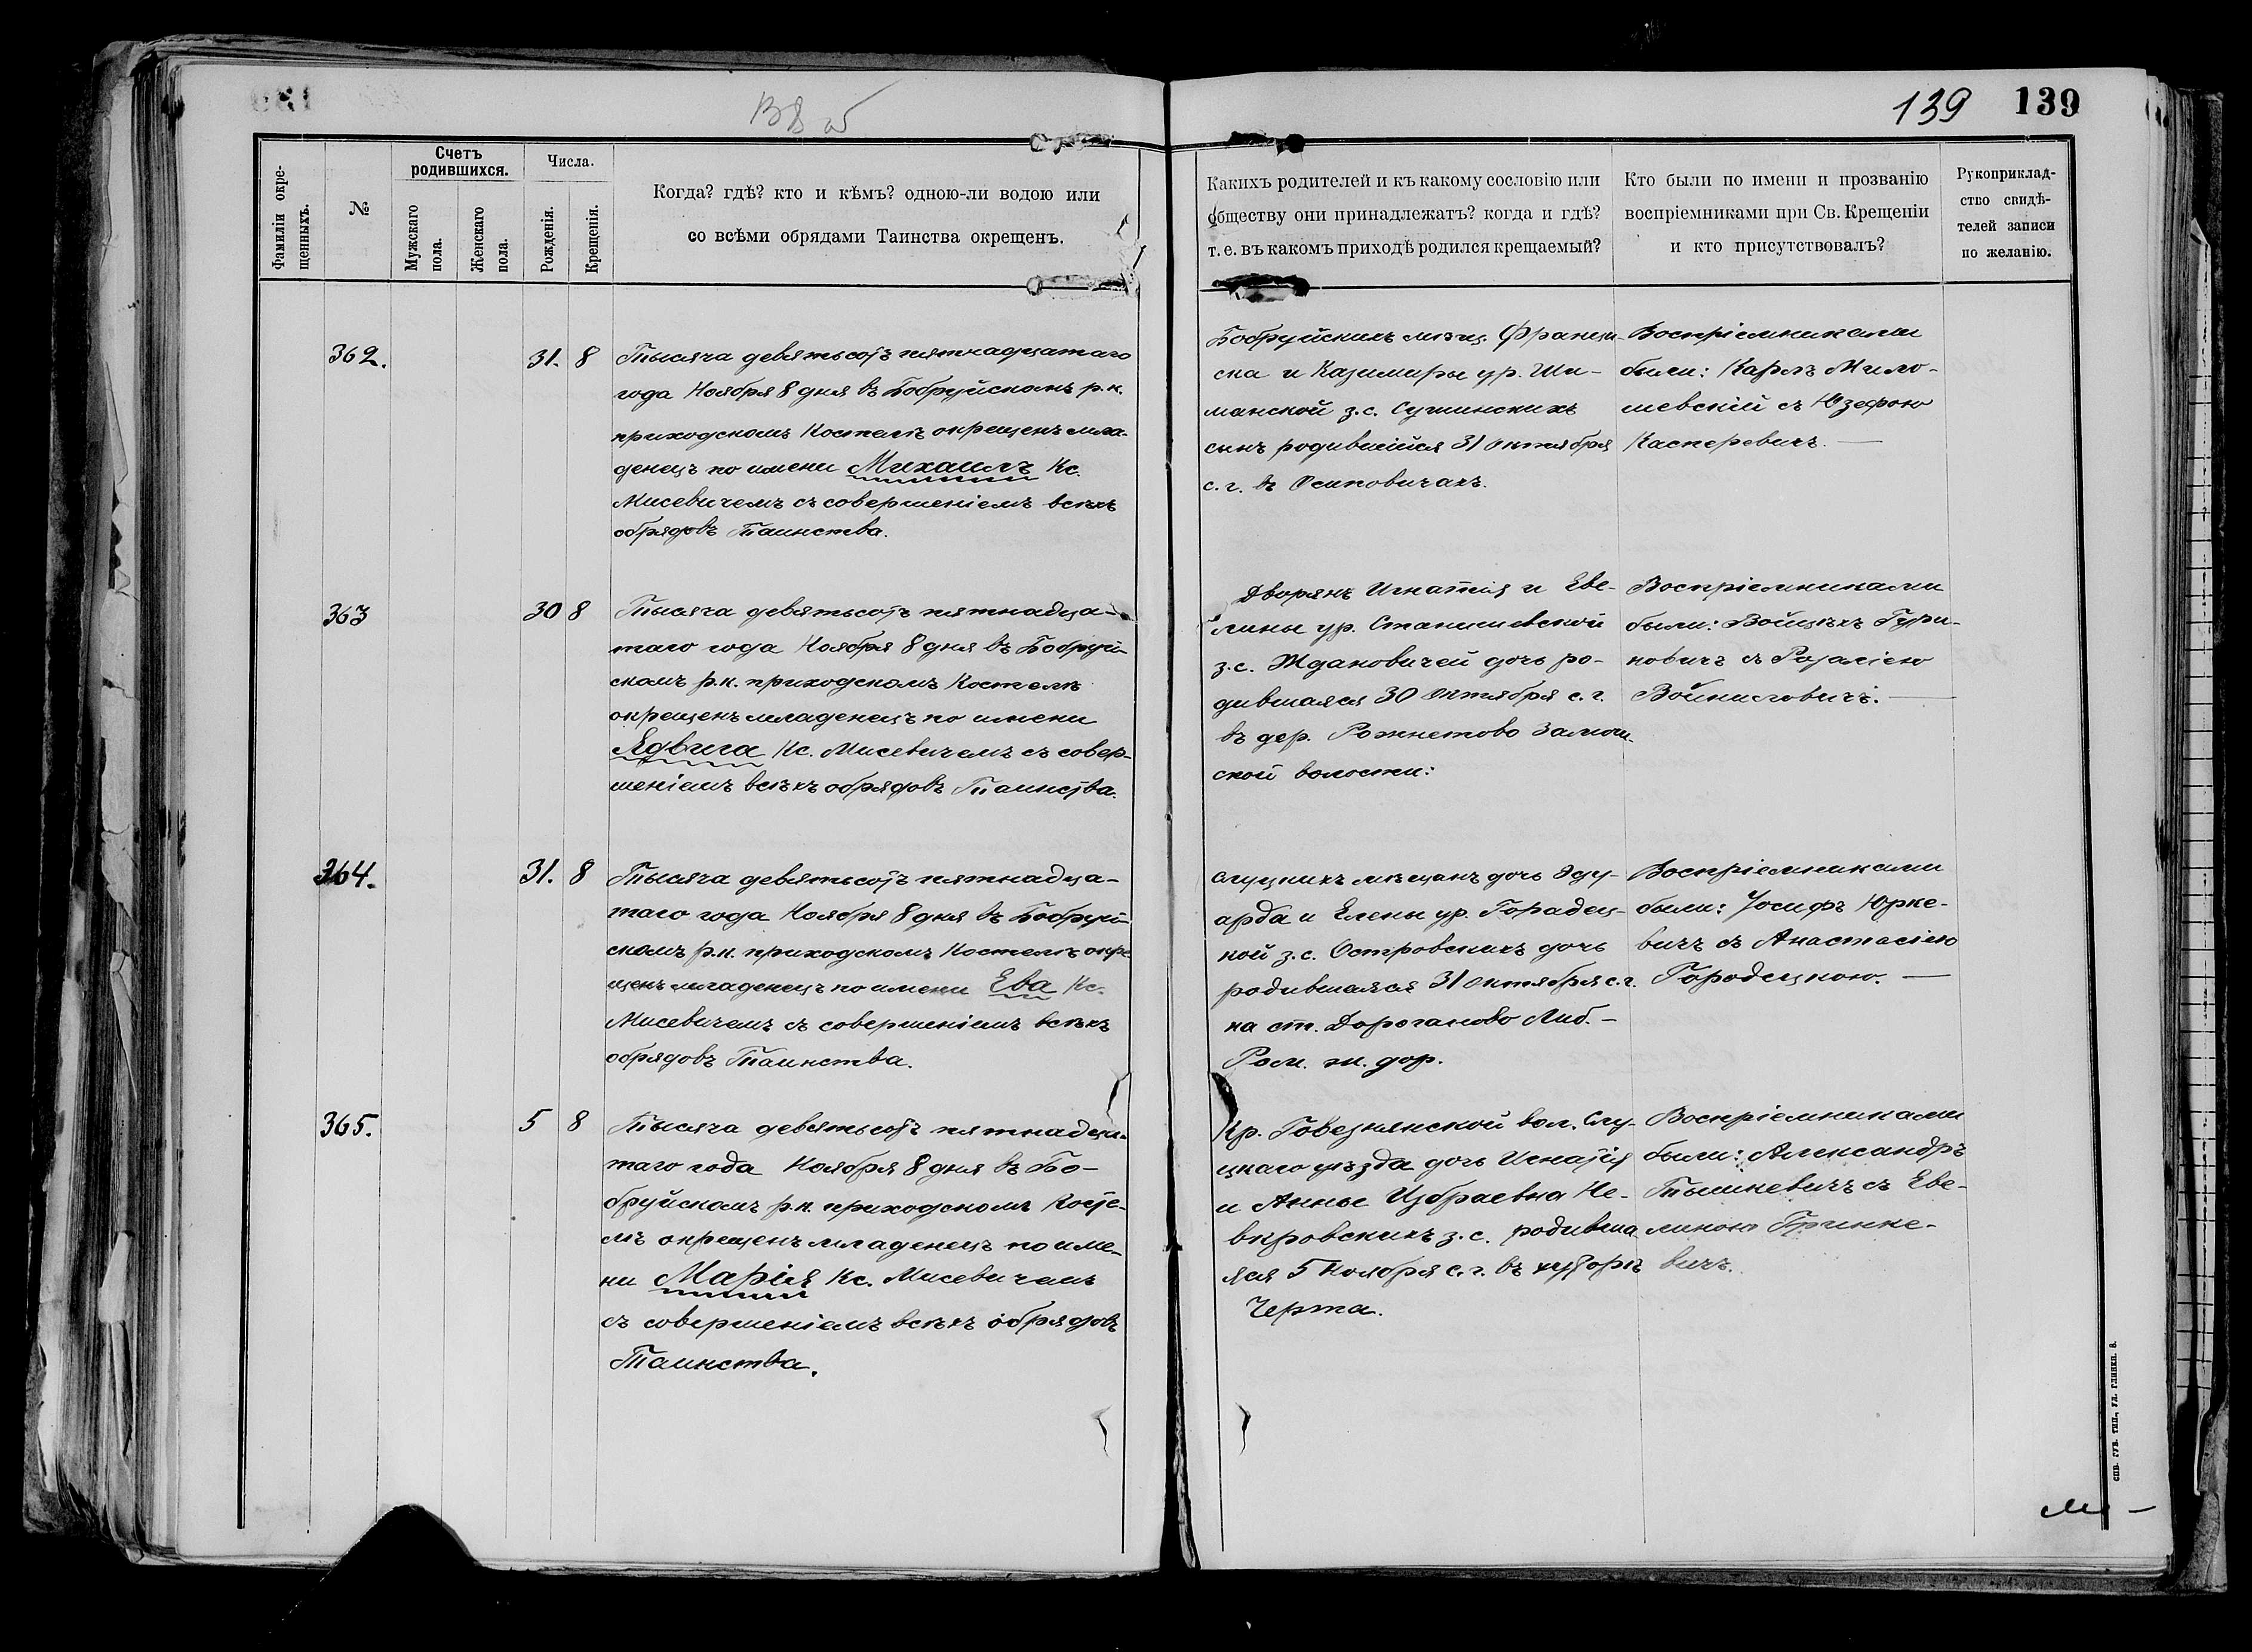 139 139
Фамиліи окре-
щенныхъ.
№
Счетъ
родившихся.
Мужскаго
пола.
Женскаго
пола.
Числа.
Рожденія.
Крещенія.
Когда? гдѣ? кто и кѣмъ? одною-ли водою или
со всѣми обрядами Таинства окрещенъ.
Какихъ родителей и къ какому сословію или
обществу они принадлежатъ? когда и гдѣ?
т. е. въ какомъ приходѣ родился крещаемый?
Кто были по имени и прозванію
воспріемниками при Св. Крещеніи
и кто присутствовалъ?
Рукоприклад-
ство свидѣ-
телей записи
по желанію.
362. 31. 8
Тысяча девятьсотъ пятнадцатаго
года Ноября 8 дня въ Бобруйскомъ р.к.
приходскомъ Костелѣ окрещенъ мла-
денецъ по имени Михаилъ Кс.
Мисевичемъ съ совершеніемъ всѣхъ
обрядовъ Таинства.
Бобруйскихъ мѣщ. Франци-
ска и Казимиры ур. Ши-
манской з.с. Сушинскихъ
сынъ родившійся 31 Октября
с. г. въ Осиповичахъ.
Воспріемниками
были: Карлъ Мило-
шевскій съ Юзефою
Касперевичъ. —
363 30 8
Тысяча девятьсотъ пятнадца-
таго года Ноября 8 дня въ Бобруй-
скомъ р.к. приходскомъ Костелѣ
окрещенъ младенецъ по имени
Ядвига Кс. Мисевичемъ съ совер-
шеніемъ всѣхъ обрядовъ Таинства.
Дворянъ Игнатія и Еве-
лины ур. Станишевской
з.с. Ждановичей дочь ро-
дившаяся 30 Октября с. г.
въ дер. Рожнетово Замош-
ской волости:
Воспріемниками
были: Войцѣхъ Гури-
новичъ съ Розаліею
Войниловичъ. —
364. 31. 8
Тысяча девятьсотъ пятнадца-
таго года Ноября 8 дня въ Бобруй-
скомъ р.к. приходскомъ Костелѣ окре
щенъ младенецъ по имени Ева Кс.
Мисевичемъ съ совершеніемъ всѣхъ
обрядовъ Таинства.
Слуцкихъ мѣщанъ дочь Эду-
арда и Елены ур. Горадец-
кой з.с. Островскихъ дочь
родившаяся 31 Октября с. г.
на ст. Дороганово Либ.-
Ром. ж. дор.
Воспріемниками
были: Іосифъ Юрке-
вичъ съ Анастасіею
Городецкою. —
365. 5 8
Тысяча девятьсотъ пятнадца-
таго года Ноября 8 дня въ Бо-
бруйскомъ р.к. приходскомъ Косте-
лѣ окрещенъ младенецъ по име-
ни Марія Кс. Мисевичемъ
съ совершеніемъ всѣхъ обрядовъ
Таинства.
Кр. Говезнянской вол. Слу-
цкаго уѣзда дочь Игнатія
и Анны Не-
вѣровскихъ з.с. родивша
яся 5 Ноября с. г. въ хуторѣ
Черта.
Воспріемниками
были: Александръ
Тышкевичъ съ Еве-
линою Гринке-
вичъ.
СПБ. ГУБ. ТИП., УЛ. ГЛИНКИ. 8.